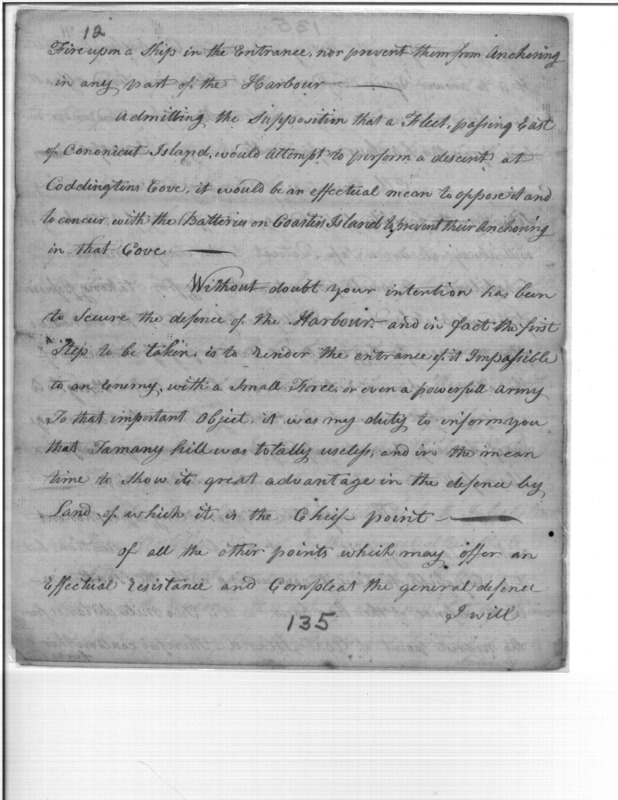 12
Fire upon a Ship in the Entrance, nor prevent them from Anchoring
in any part of the Harbour —
Admitting the Supposition that a Fleet, passing East
of Cononicut Island, would Attempt to perform a descent at
Coddingtins Cove, it would be an effectual mean to oppose it and
to concur with the Batteries on Coasters Island & prevent their Anchoring
in that Cove —
Without doubt your intention has been
to Secure the defence of the Harbour — and in fact the first
Step to be taken is to render the entrance of it Impassible
to an Enemy, with a Small Force or even a powerfull Army
To that important Object, it was my duty to inform you
that Tamany hill was totally useless, and in the mean
time to Show its great advantage in the defence by
Land of which it is the Cheif point —
Of all the other points which may offer an
Effectual resistance and Compleat the general defence
I will
135